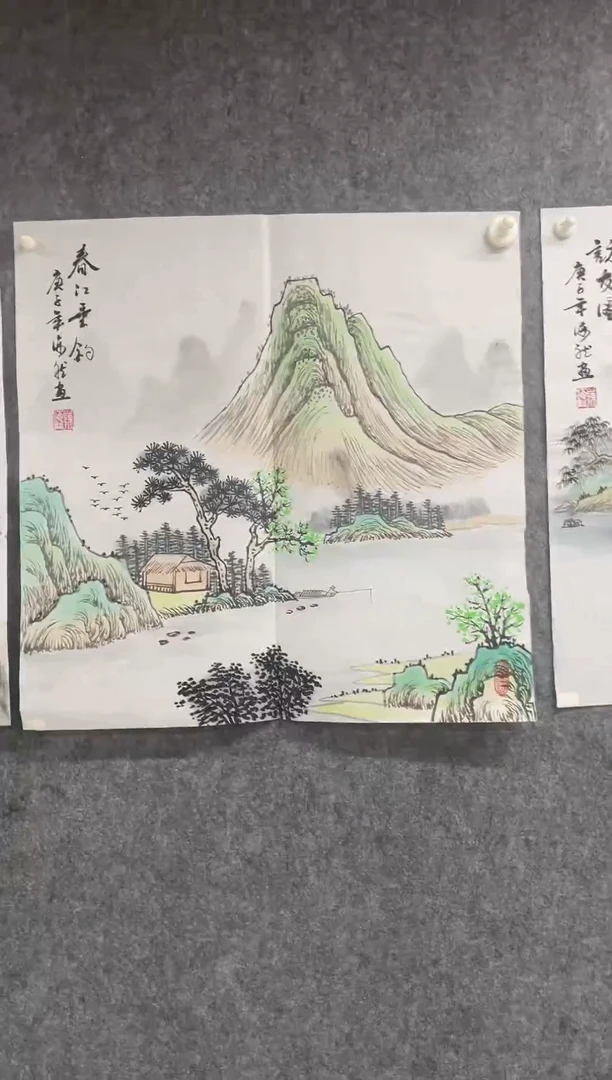 春江垂钓
庚子年海龙画
访友图
庚子年海龙画